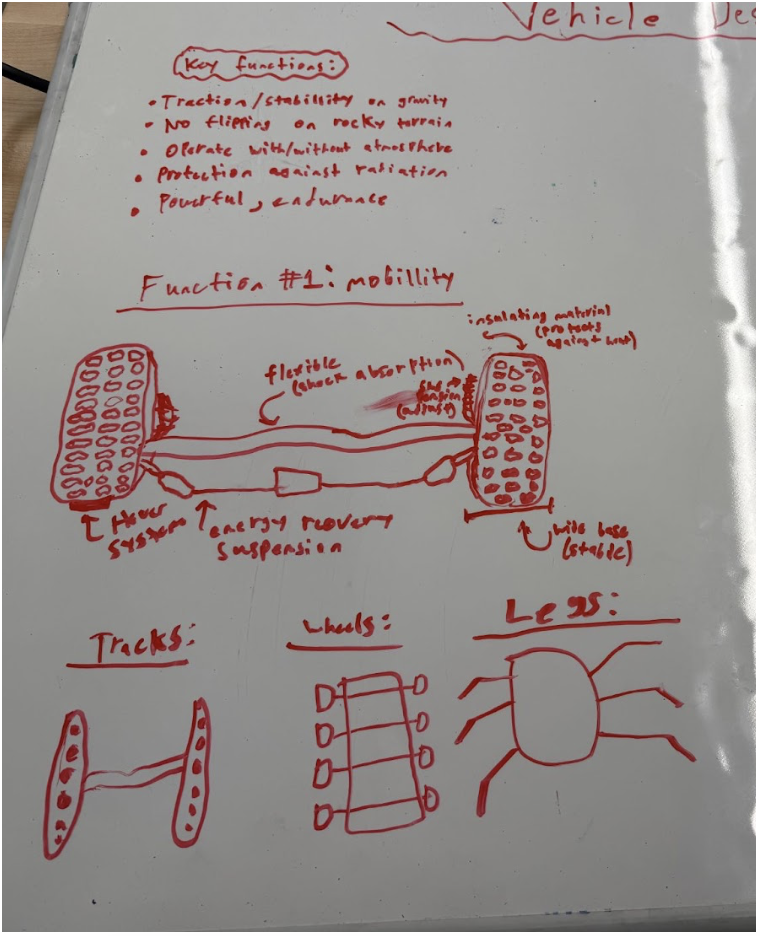 Vehicle
Key functions:
• Traction/stabillity on gravity
• No flipping on rocky terrain
• Operate with/without atmosphere
• Protection against radiation
• Powerful, endurance
Function #1: mobillity
insulating material
(protects
against heat)
flexible
(shock absorption)
(adjust)
Hover
System
energy recovery
suspension
wide base
(stable)
Tracks:
Wheels:
Legs: